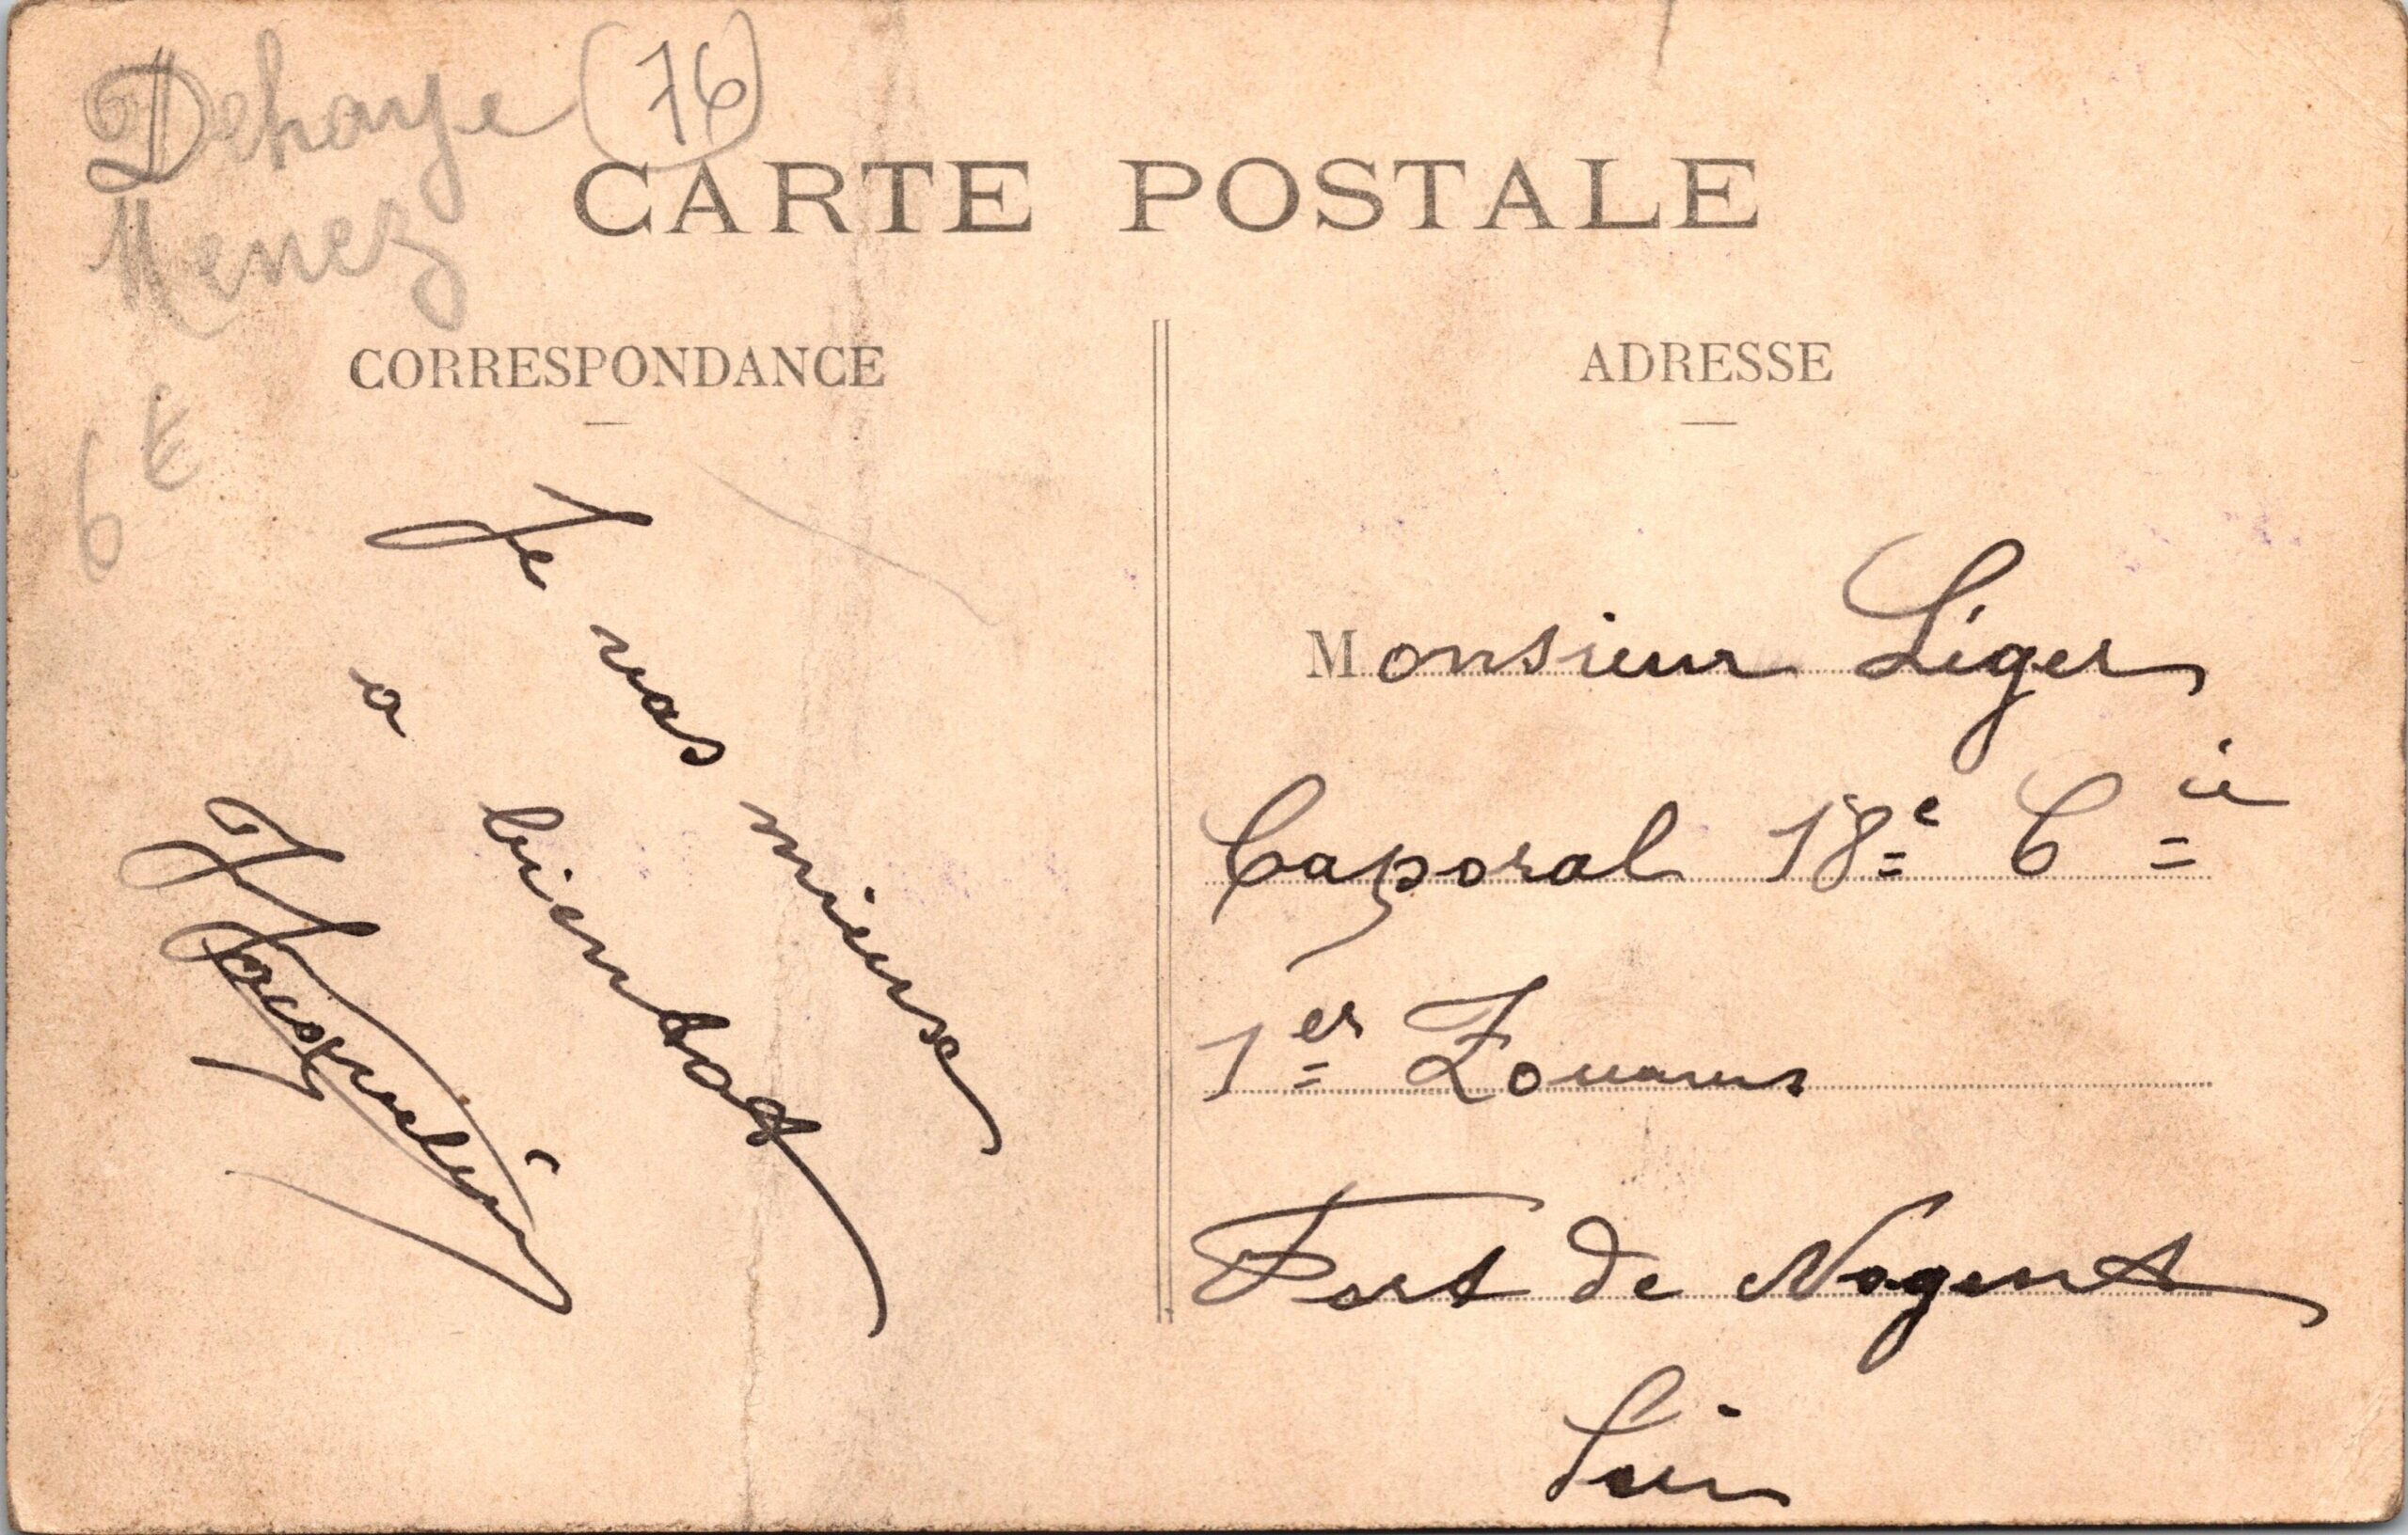 Dehaye (76)
Menez
6€
CARTE POSTALE
CORRESPONDANCE
ADRESSE
Je vas mieuse
a bientot
Jacquelin
Monsieur Léger
Caporal 18e Cie
1er Zouaves
Fort de Nogent